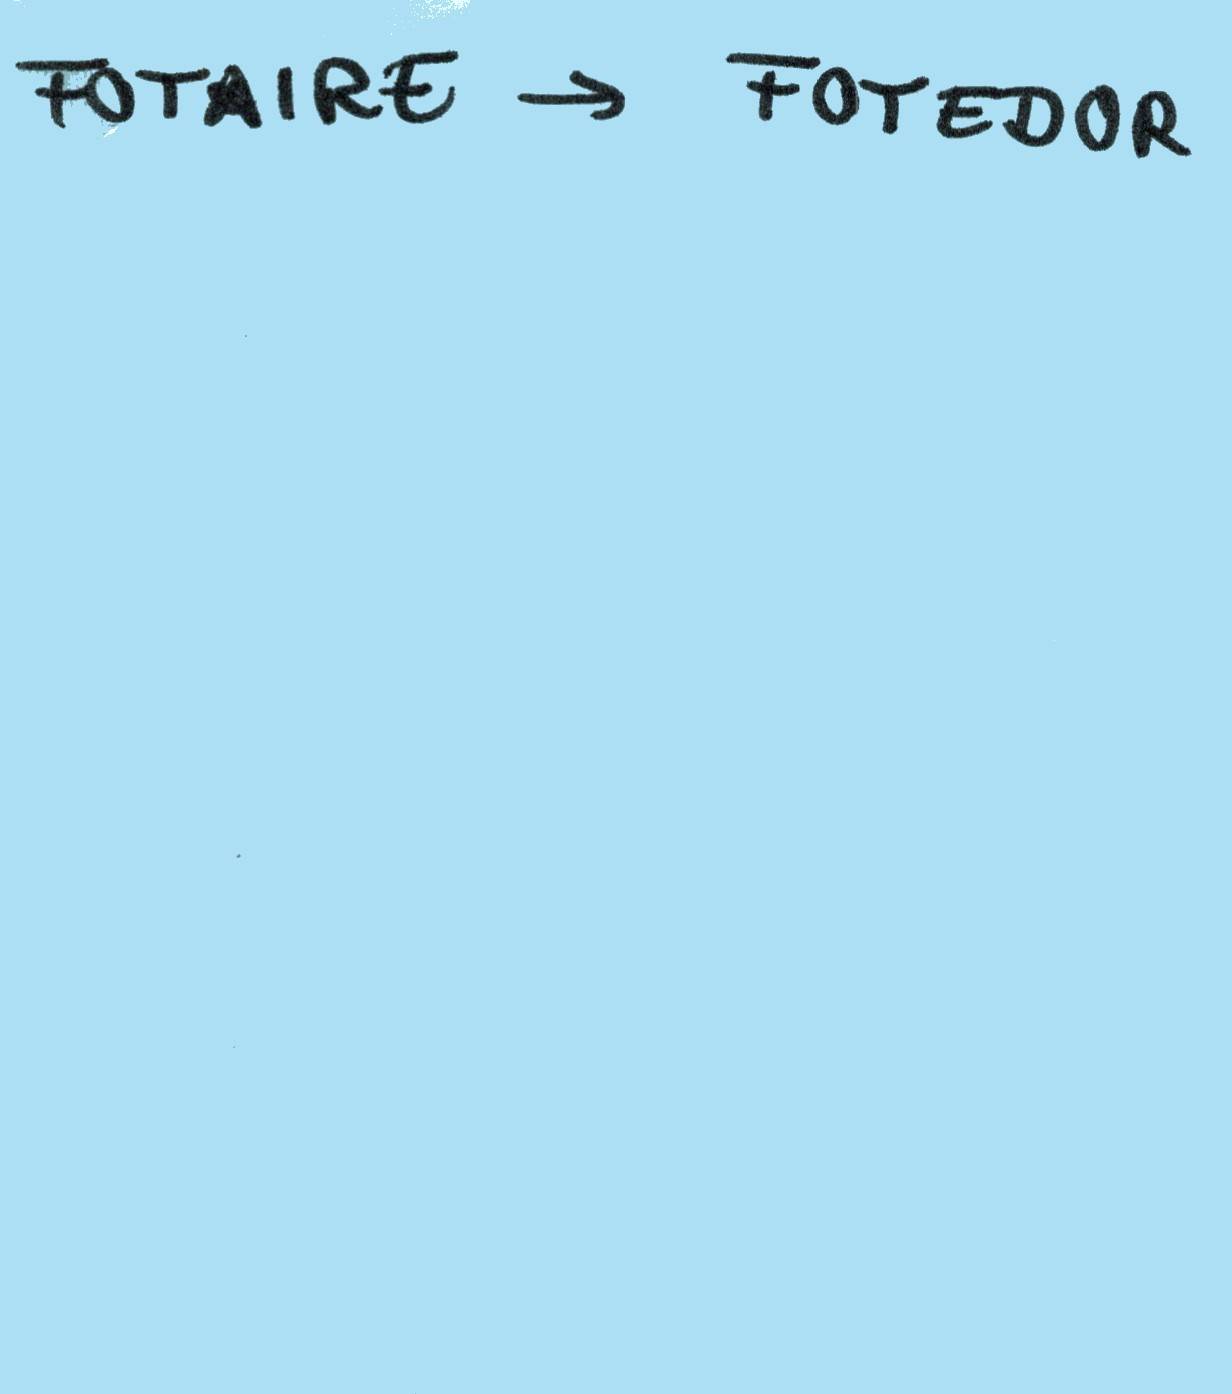 FOTAIRE → FOTEDOR